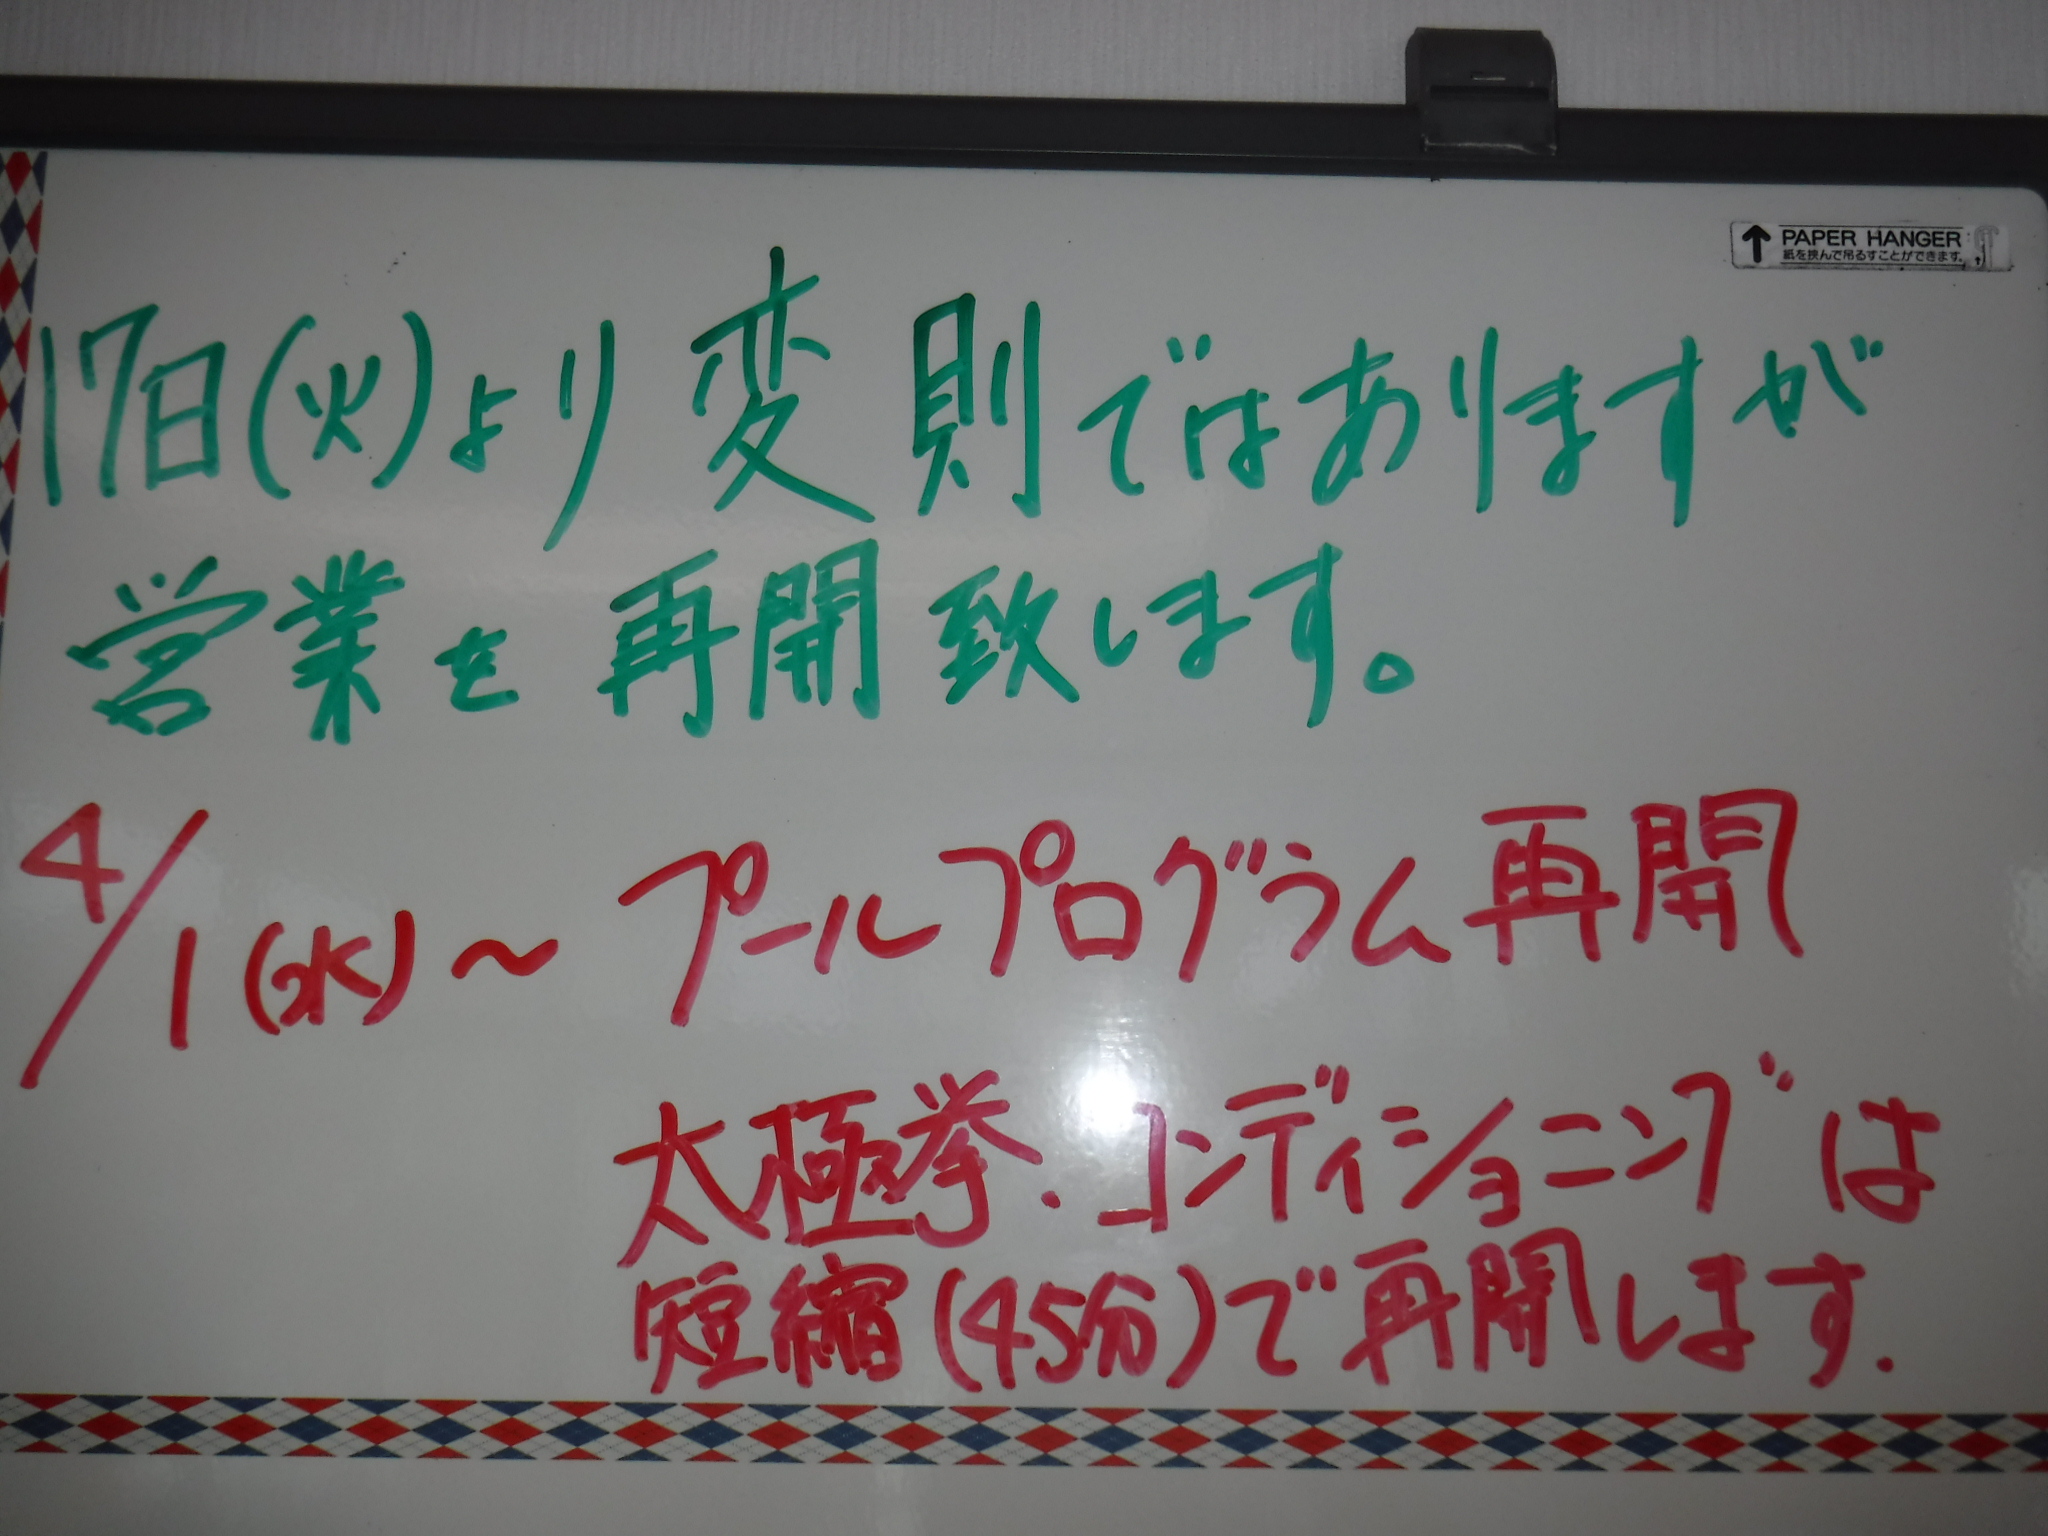 PAPER HANGER
紙を挟んで吊るすことができます。
17日(火)より変則ではありますが
営業を再開致します。
4/1(水)～プールプログラム再開
太極拳.コンディショニングは
短縮(45分)で再開します.